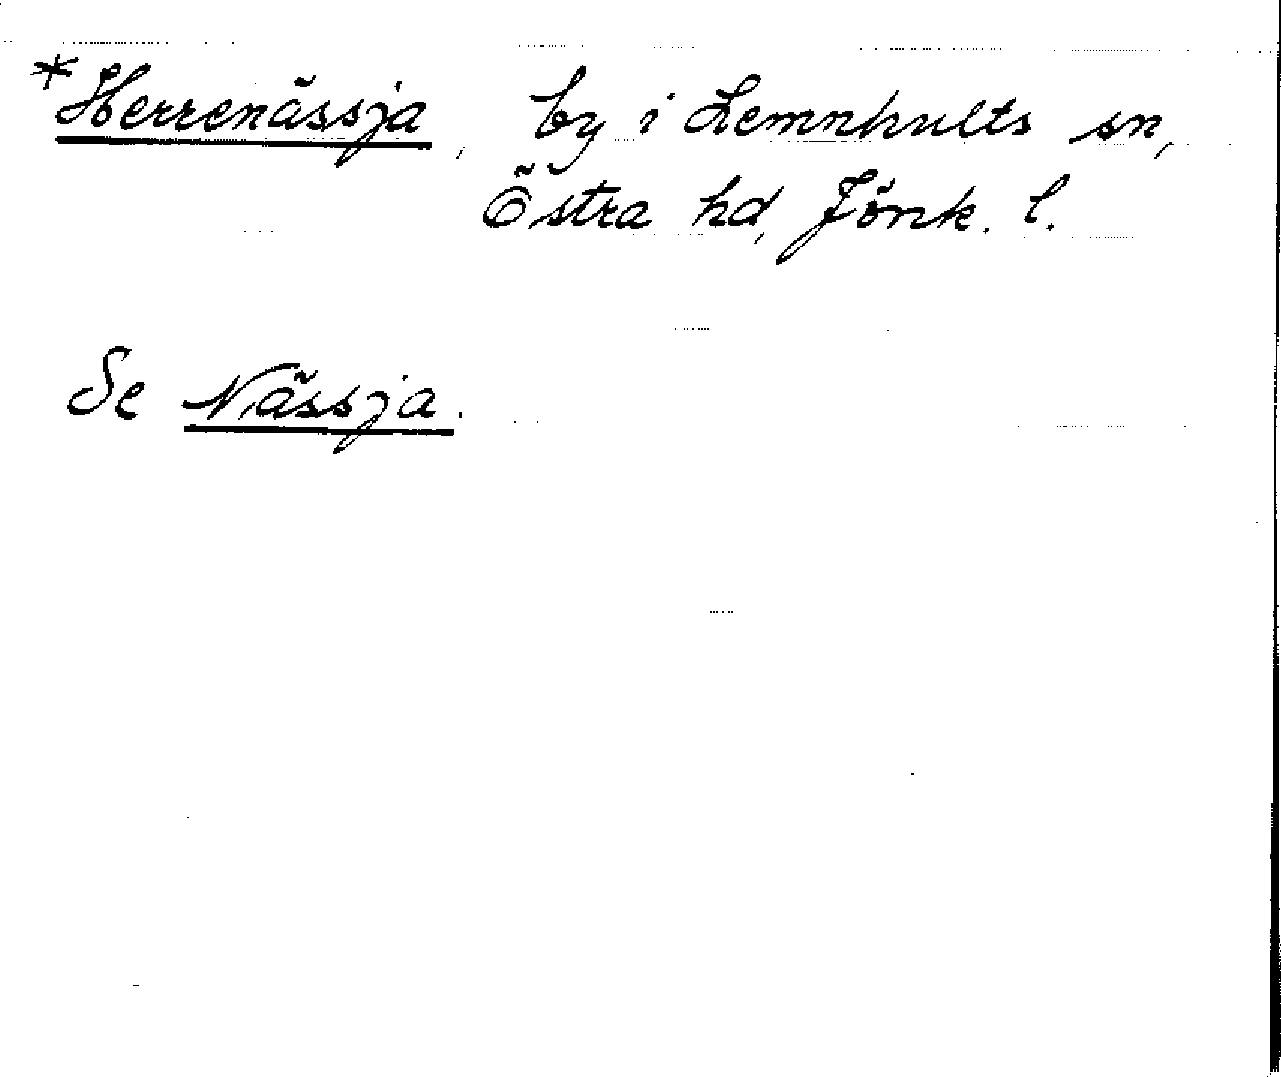 *Herrenässja, by i Lemnhults sn,
Östra hd, Jönk. l.
Se Nässja.